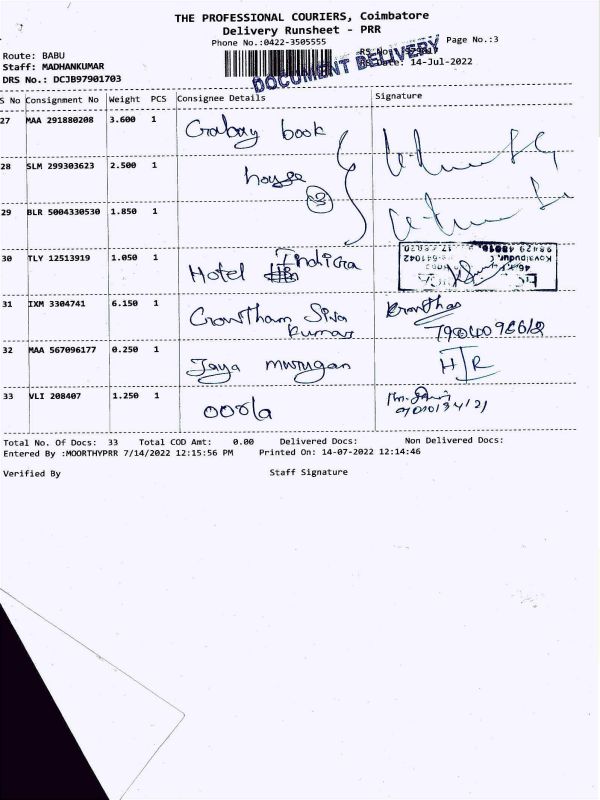 THE PROFESSIONAL COURIERS, Coimbatore
Delivery Runsheet - PRR
Phone No.:0422-3505555
Page No.:3
Route: BABU
Staff: MADHANKUMAR
DRS No.: DCJB97901703
Date: 14-Jul-2022
DOCUMENT DELIVERY
S No Consignment No Weight PCS Consignee Details Signature
27 MAA 291880208 3.600 1 book
28 SLM 299303623 2.500 1 house 3
29 BLR 5004330530 1.850 1
30 TLY 12513919 1.050 1 Hotel Indicra
31 IXM 3304741 6.150 1 Gowtham Siva
Kumar
32 MAA 567096177 0.250 1 Jaya murugan
33 VLI 208407 1.250 1 oorla
Total No. Of Docs: 33 Total COD Amt: 0.00 Delivered Docs: Non Delivered Docs:
Entered By :MOORTHYPRR 7/14/2022 12:15:56 PM Printed On: 14-07-2022 12:14:46
Verified By Staff Signature